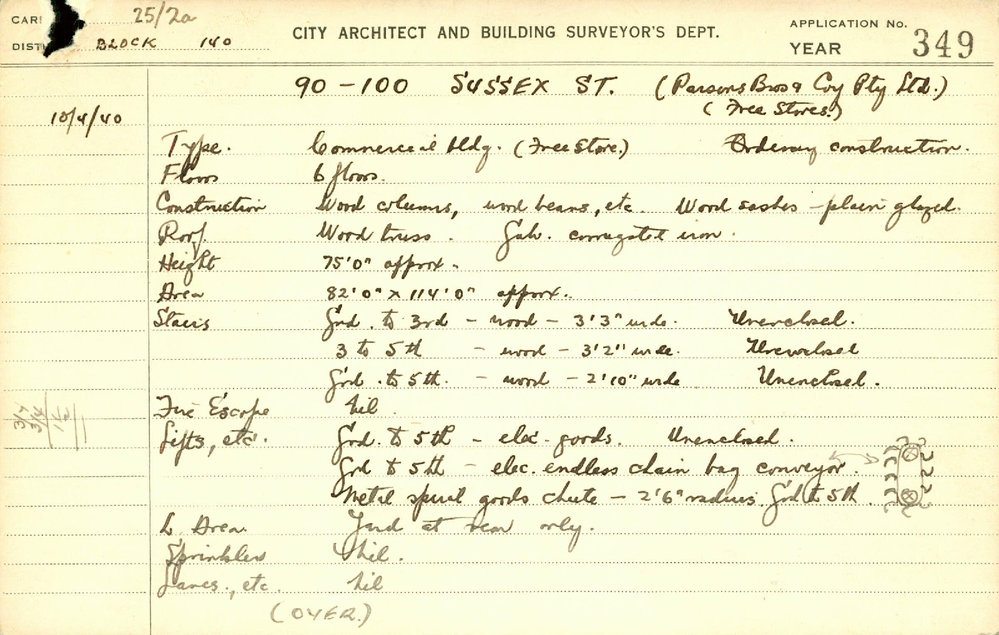 CAR 25/2a
DIST BLOCK 140
CITY ARCHITECT AND BUILDING SURVEYOR'S DEPT.
APPLICATION No.
YEAR 349
90-100 SUSSEX ST. (Parsons Bros & Coy Pty Ltd.)
(Free Stores.)
10/4/40
Type. Commercial bldg. (Free Store.) Ordinary construction.
Floors 6 floors.
Construction Wood columns, wood beams, etc. Wood sashes - plain glazed.
Roof. Wood truss. Galv. corrugated iron.
Height 75'0" approx.
Area 82'0" x 114'0" approx.
Stairs Grd. to 3rd - wood - 3'3" wide. Unenclosed.
3 to 5th - wood - 3'2" wide. Unenclosed
Grd. to 5th. - wood - 2'10" wide Unenclosed.
Fire Escape Nil.
Lifts, etc. Grd. to 5th - elec. goods. Unenclosed.
Grd to 5th - elec. endless chain bag conveyor.
Metal spiral goods chute - 2'6" radius. Grd to 5th.
L. Area Yard at rear only.
Sprinklers Nil.
Lanes., etc. Nil
(OVER.)